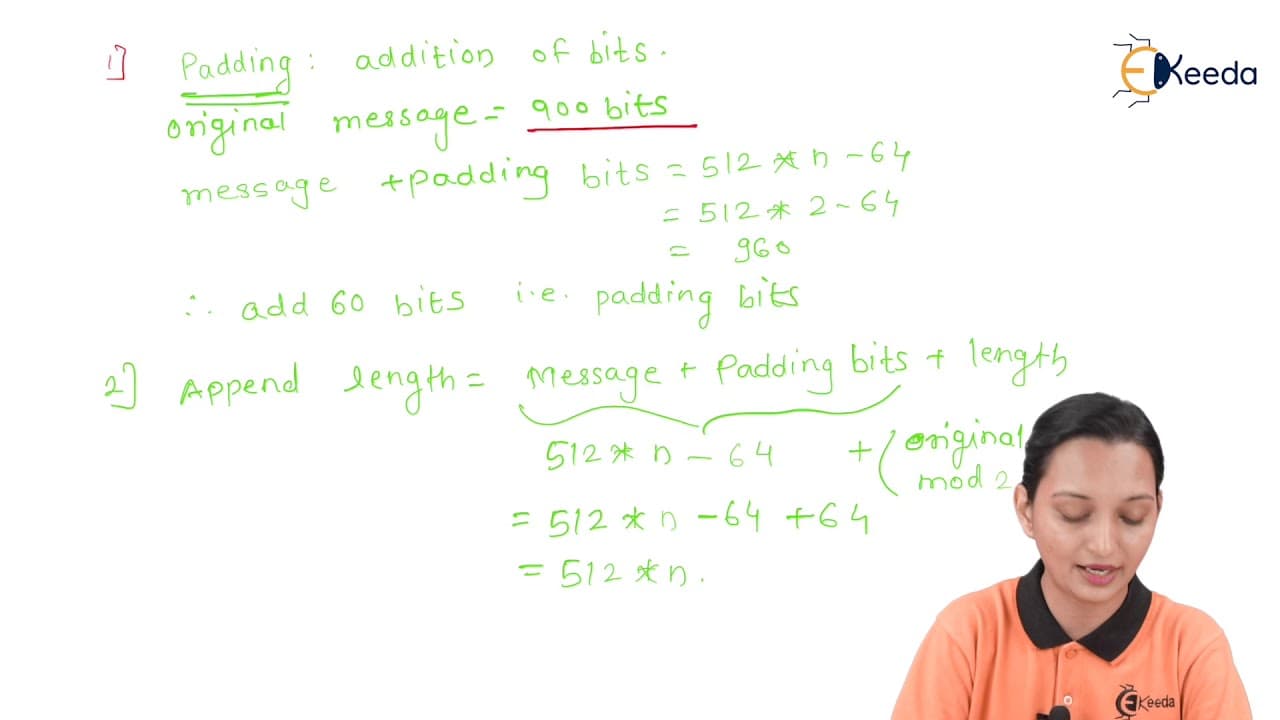 1] Padding: addition of bits.
EKeeda
original message = 900 bits
message + padding bits = 512 * n - 64
= 512 * 2 - 64
= 960
∴ add 60 bits i.e. padding bits
2] Append length = Message + Padding bits + length
512 * n - 64 + (original
mod 2
= 512 * n - 64 + 64
= 512 * n.
EKeeda